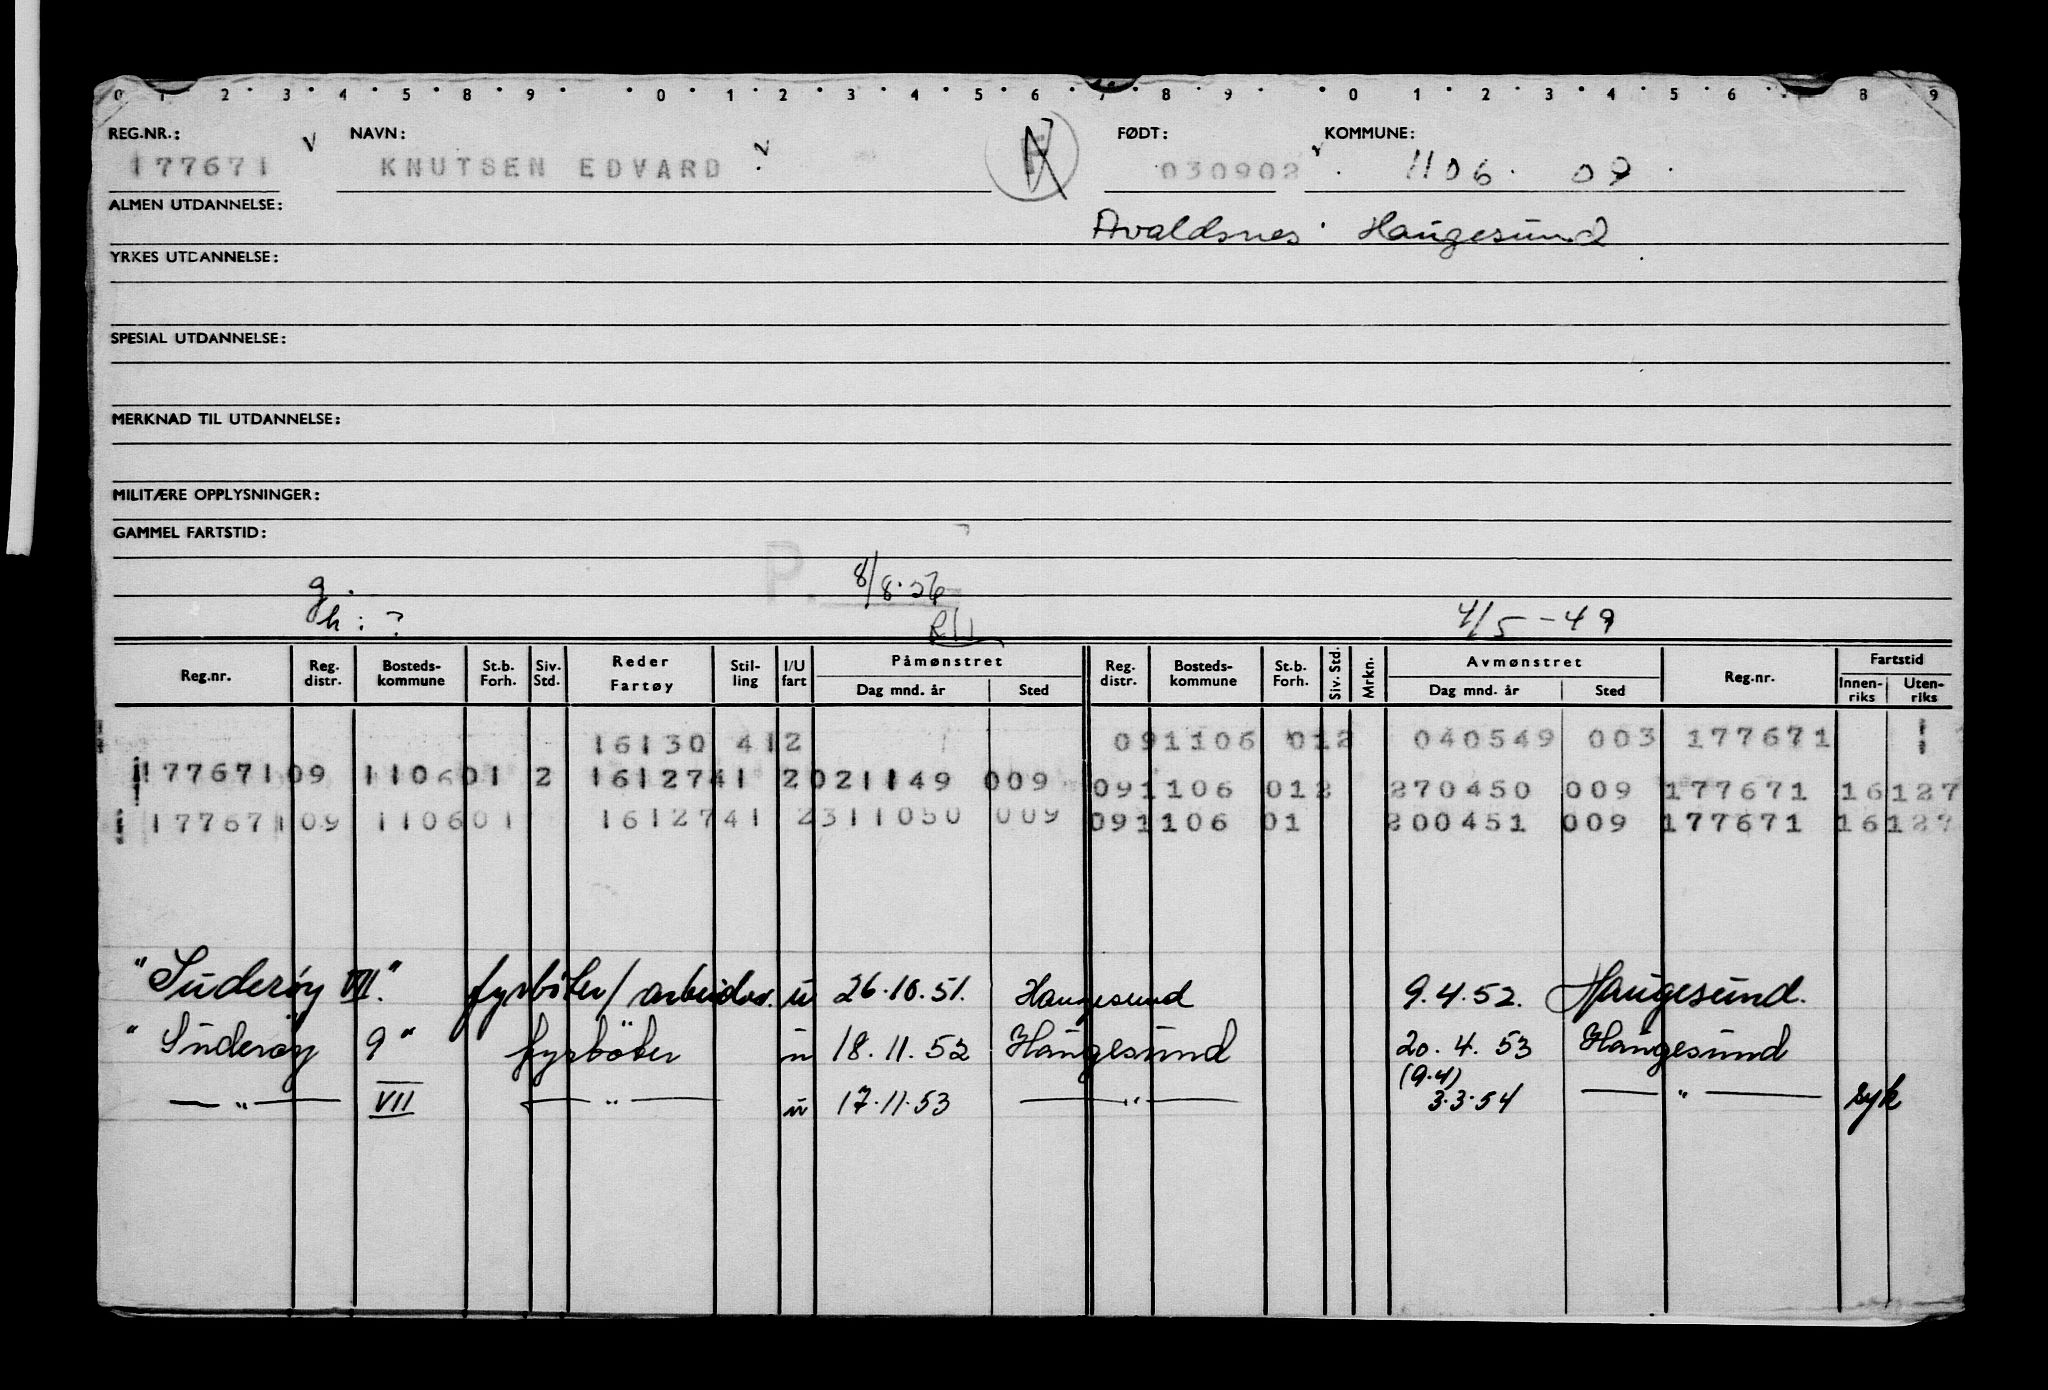 0 1 2 3 4 5 8 9 0 1 2 3 4 5 6 7 8 9 0 1 2 3 4 5 6 8 9
REG.NR.: NAVN: FØDT: KOMMUNE:
177671 KNUTSEN EDVARD 030902 1106 09
ALMEN UTDANNELSE:
Avaldsnes Haugesund
YRKES UTDANNELSE:
SPESIAL UTDANNELSE:
MERKNAD TIL UTDANNELSE:
MILITÆRE OPPLYSNINGER:
GAMMEL FARTSTID:
P. 8/8.56
g.
h : ? 4/5-49
Reg.nr. Reg. distr. Bosteds-kommune St.b. Forh. Siv. Std. Reder Fartøy Stil-ling I/U fart Påmønstret Dag mnd. år Sted Reg. distr. Bosteds-kommune St.b. Forh. Siv. Std. Mrkn. Avmønstret Dag mnd. år Sted Reg.nr. Fartstid Innen-riks Uten-riks
16130 412 091106 012 040549 003 177671
177671 09 110601 2 1612741 2021149 009 091106 012 270450 009 177671 16127
177671 09 110601 1612741 2311050 009 091106 01 200451 009 177671 16127
"Suderøy VII." fyrbøter/arbeider. u 26.10.51. Haugesund 9.4.52. Haugesund.
"Suderøy 9" fyrbøter u 18.11.52 Haugesund 20.4.53 Haugesund
(9.4)
— " — VII — " — u 17.11.53 — " — 3.3.54 — " — syk